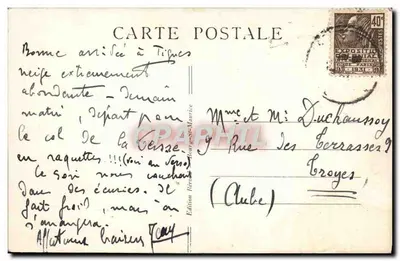 CARTE POSTALE
Bonne arrivée à Tignes
neige extrêmement
abondante - demain
matin, départ pour
le col de la Leisse
en raquettes !!! (voir au verso)
le soir nous couchons
dans des écuries. Il
fait froid, mais on
s'arrangera
Affectueux baisers Jean
40c
EXPOSITION
1931
Mme et Mr Duchaussoy
9 Rue des Terrasses 9
Troyes
(Aube)